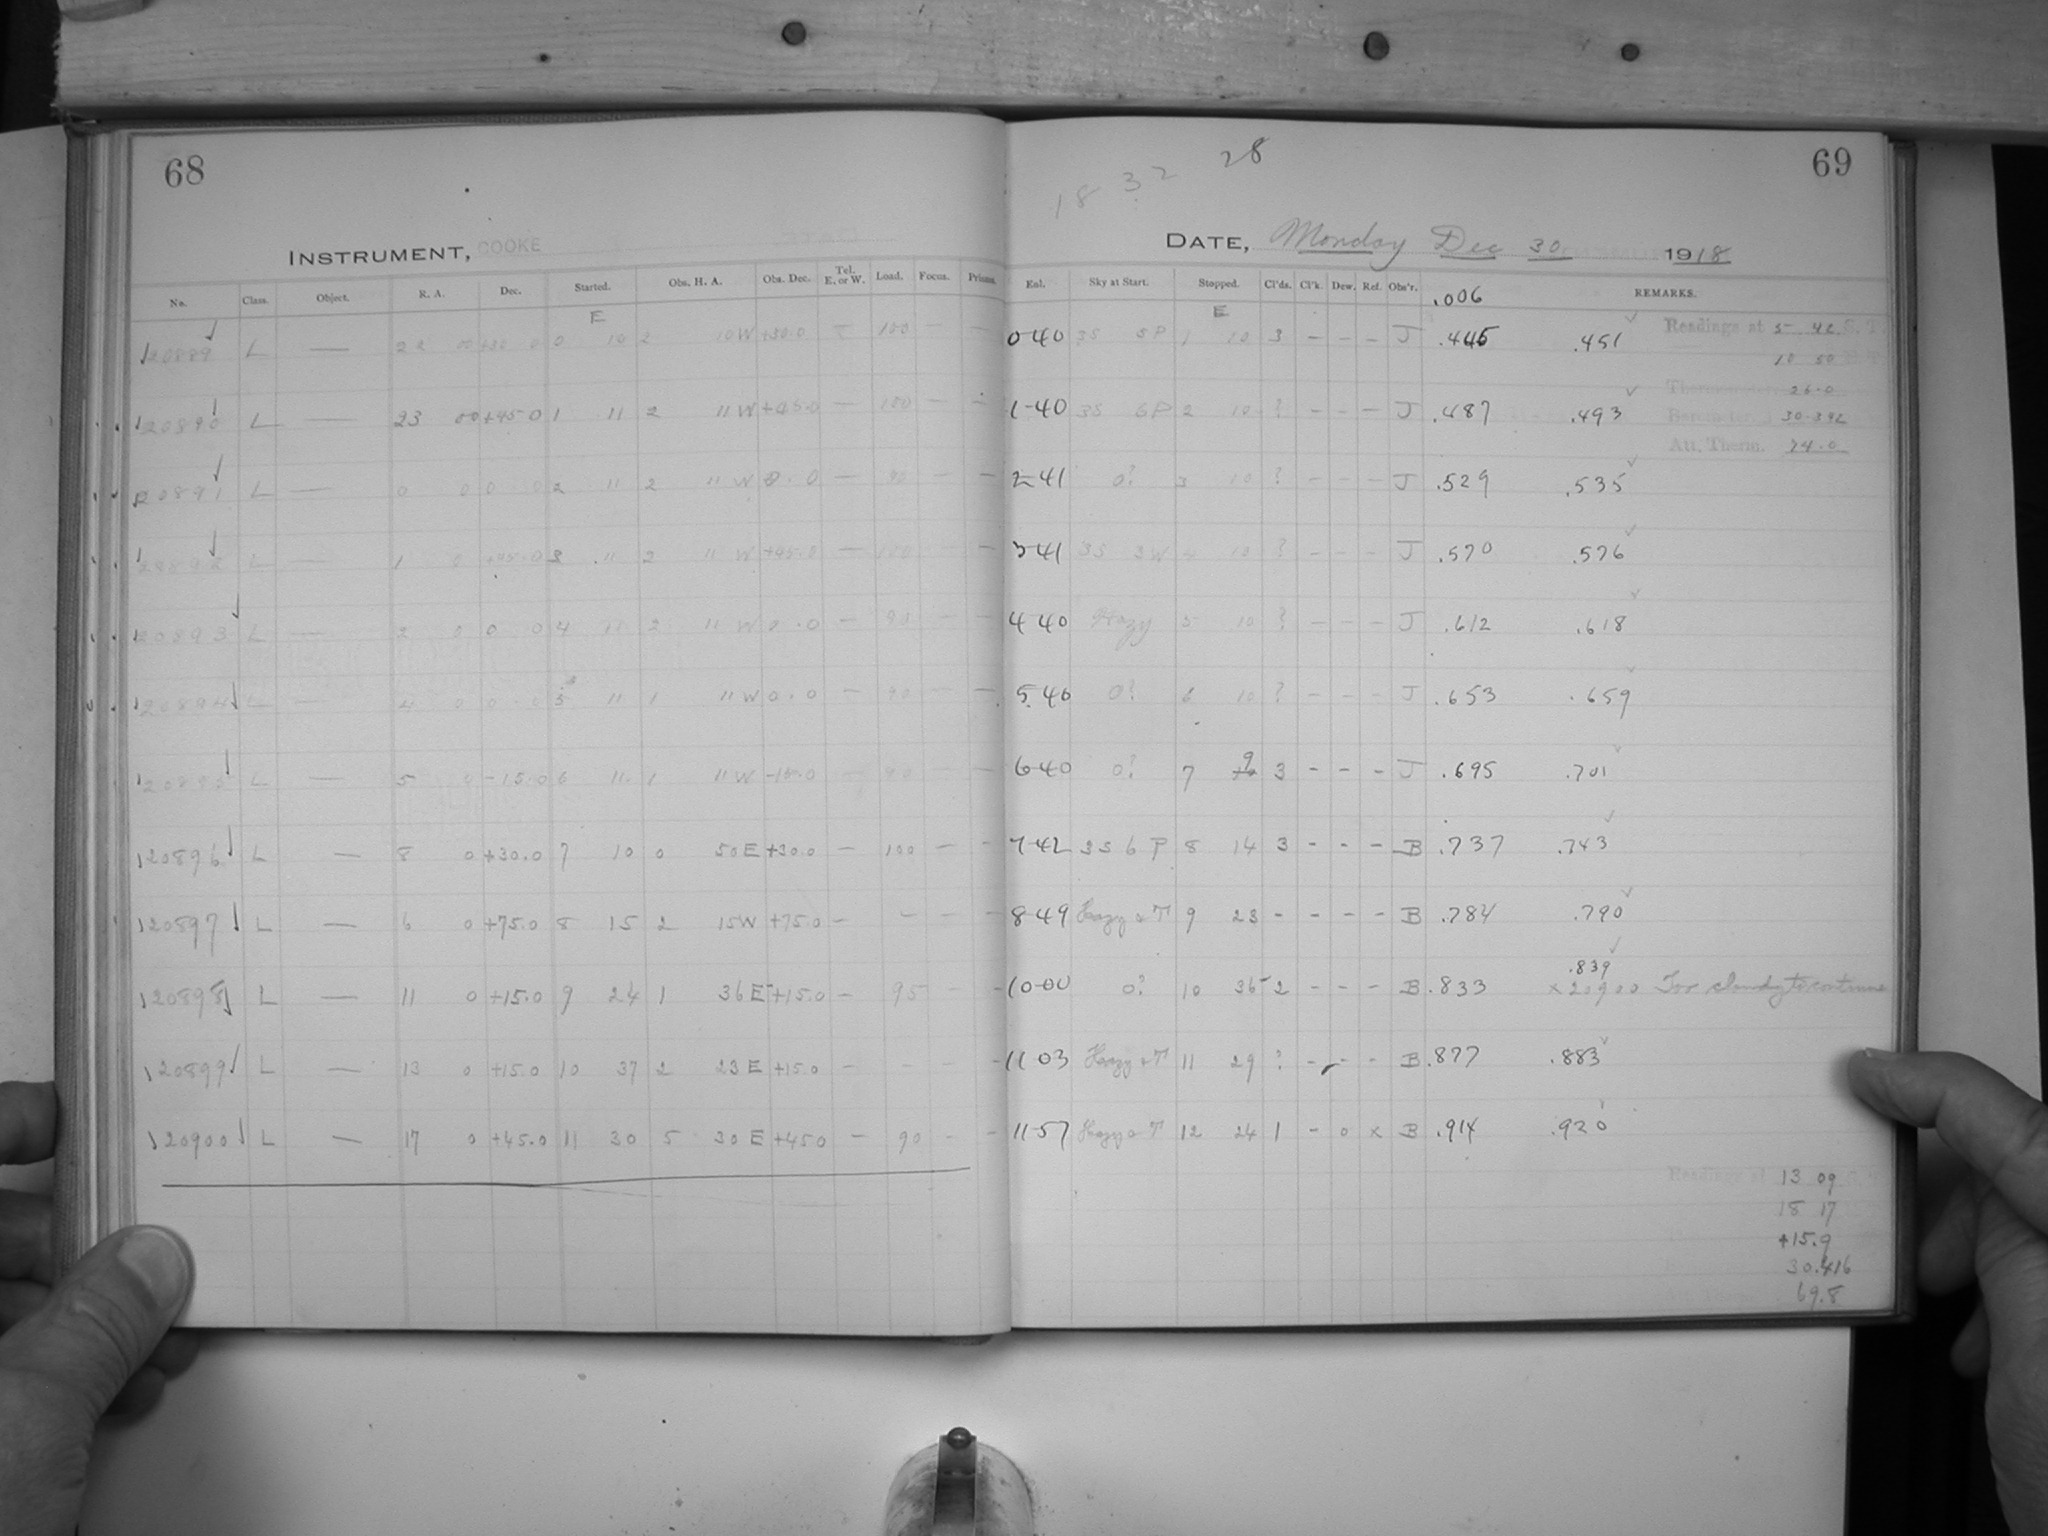 68
INSTRUMENT, COOKE
No. Class. Object. R. A. Dec. Started. Obs. H. A. Obs. Dec. Tel. E. or W. Load. Focus. Prisms.
E
20889 L — 22 00 +30 0 0 10 2 10 W +30.0 — 100 — —
20890 L — 23 00 +45.0 1 11 2 11 W +45.0 — 100 — —
20891 L — 0 0 0 0 2 11 2 11 W 0.0 — 90 — —
20892 L — 1 0 +45.0 3 11 2 11 W +45.0 — 100 — —
20893 L — 2 0 0 0 4 11 2 11 W 0.0 — 90 — —
20894 L — 4 0 0 0 5 11 1 11 W 0.0 — 90 — —
20895 L — 5 0 -15.0 6 11 1 11 W -15.0 — 90 — —
20896 L — 8 0 +30.0 7 10 0 50 E +30.0 — 100 — —
20897 L — 6 0 +75.0 8 15 2 15 W +75.0 — — — —
20898 L — 11 0 +15.0 9 24 1 36 E +15.0 — 95 — —
20899 L — 13 0 +15.0 10 37 2 23 E +15.0 — — — —
20900 L — 17 0 +45.0 11 30 5 30 E +450 — 90 — —
69
18 32 28
DATE, Monday Dec 30, 1918
Exl. Sky at Start. Stopped. Cl'ds. Cl'k. Dew. Ref. Obs'r. .006 REMARKS.
E
0 40 3S 5P 1 10 3 - - - J .445 .451 Readings at 5 42 S. T.
10 50
1-40 3S 6P 2 10 ? - - - J .487 .493 Thermometer 26.0
Barometer 30.392
Att. Therm. 74.0
2-41 0? 3 10 ? - - - J .529 .535
3-41 3S 3W 4 10 ? - - - J .570 .576
4 40 Hazy 5 10 ? - - - J .612 .618
5 40 0? 6 10 ? - - - J .653 .659
6 40 0? 7 9 3 - - - J .695 .701
7 42 3S 6 P 8 14 3 - - - B .737 .743
8 49 Hazy & T 9 23 - - - - B .784 .790
10 00 0? 10 36 2 - - - B .833 .839
x 20900 Too cloudy to continue
11 03 Hazy & T 11 29 ? - - - B .877 .883
11-57 Hazy & T 12 24 1 - 0 x B .914 .920
Readings at 13 09 S. T.
18 17
+15.9
30.416
69.8